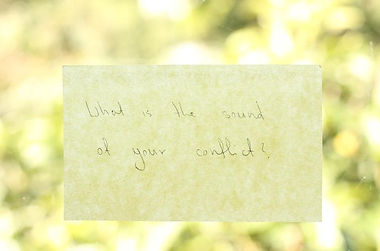 What is the sound
of your conflict?